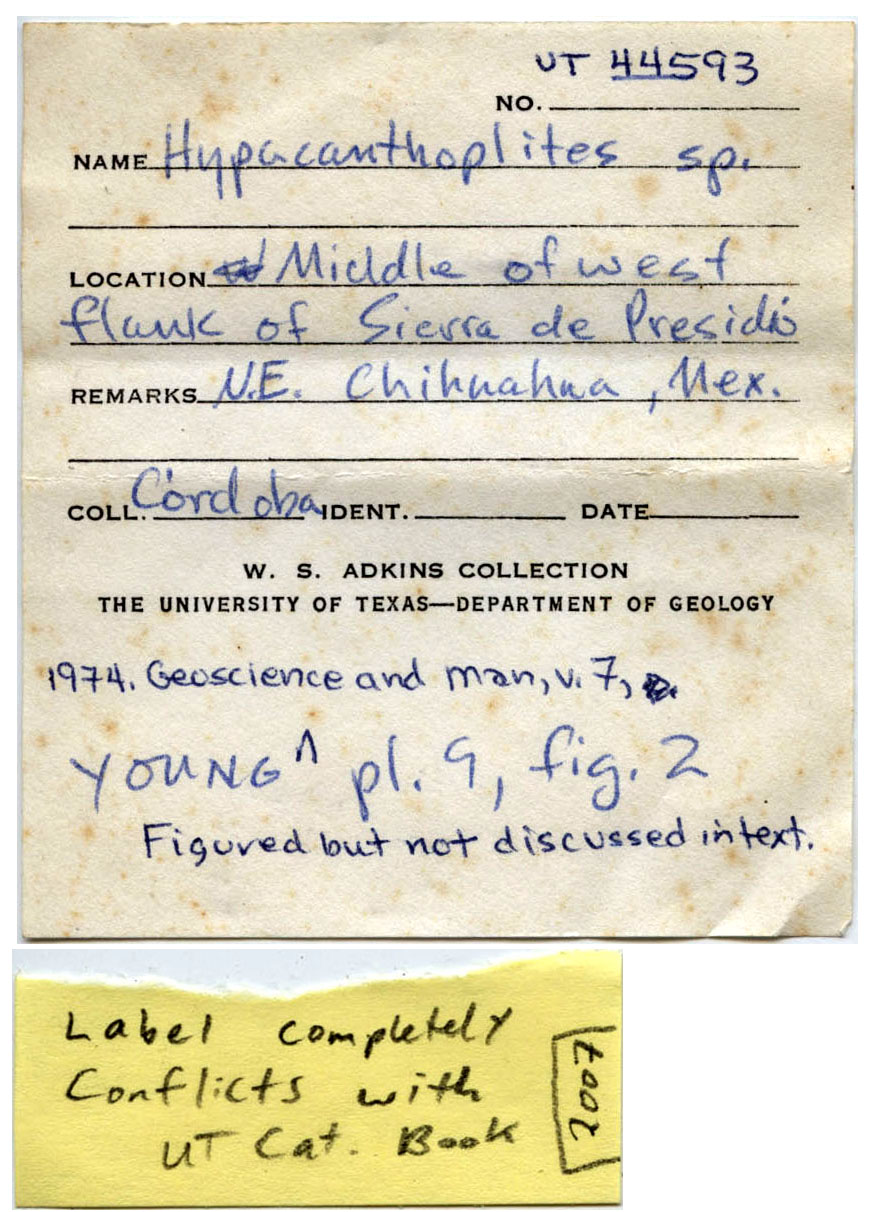 UT 44593
NO.
NAME Hypacanthoplites sp.
LOCATION Middle of west
flank of Sierra de Presidio
REMARKS N.E. Chihuahua, Mex.
COLL. Córdoba IDENT. DATE
W. S. ADKINS COLLECTION
THE UNIVERSITY OF TEXAS—DEPARTMENT OF GEOLOGY
1974. Geoscience and man, v. 7,
YOUNG ^ pl. 9, fig. 2
Figured but not discussed in text.
Label completely
Conflicts with
UT Cat. Book
2007